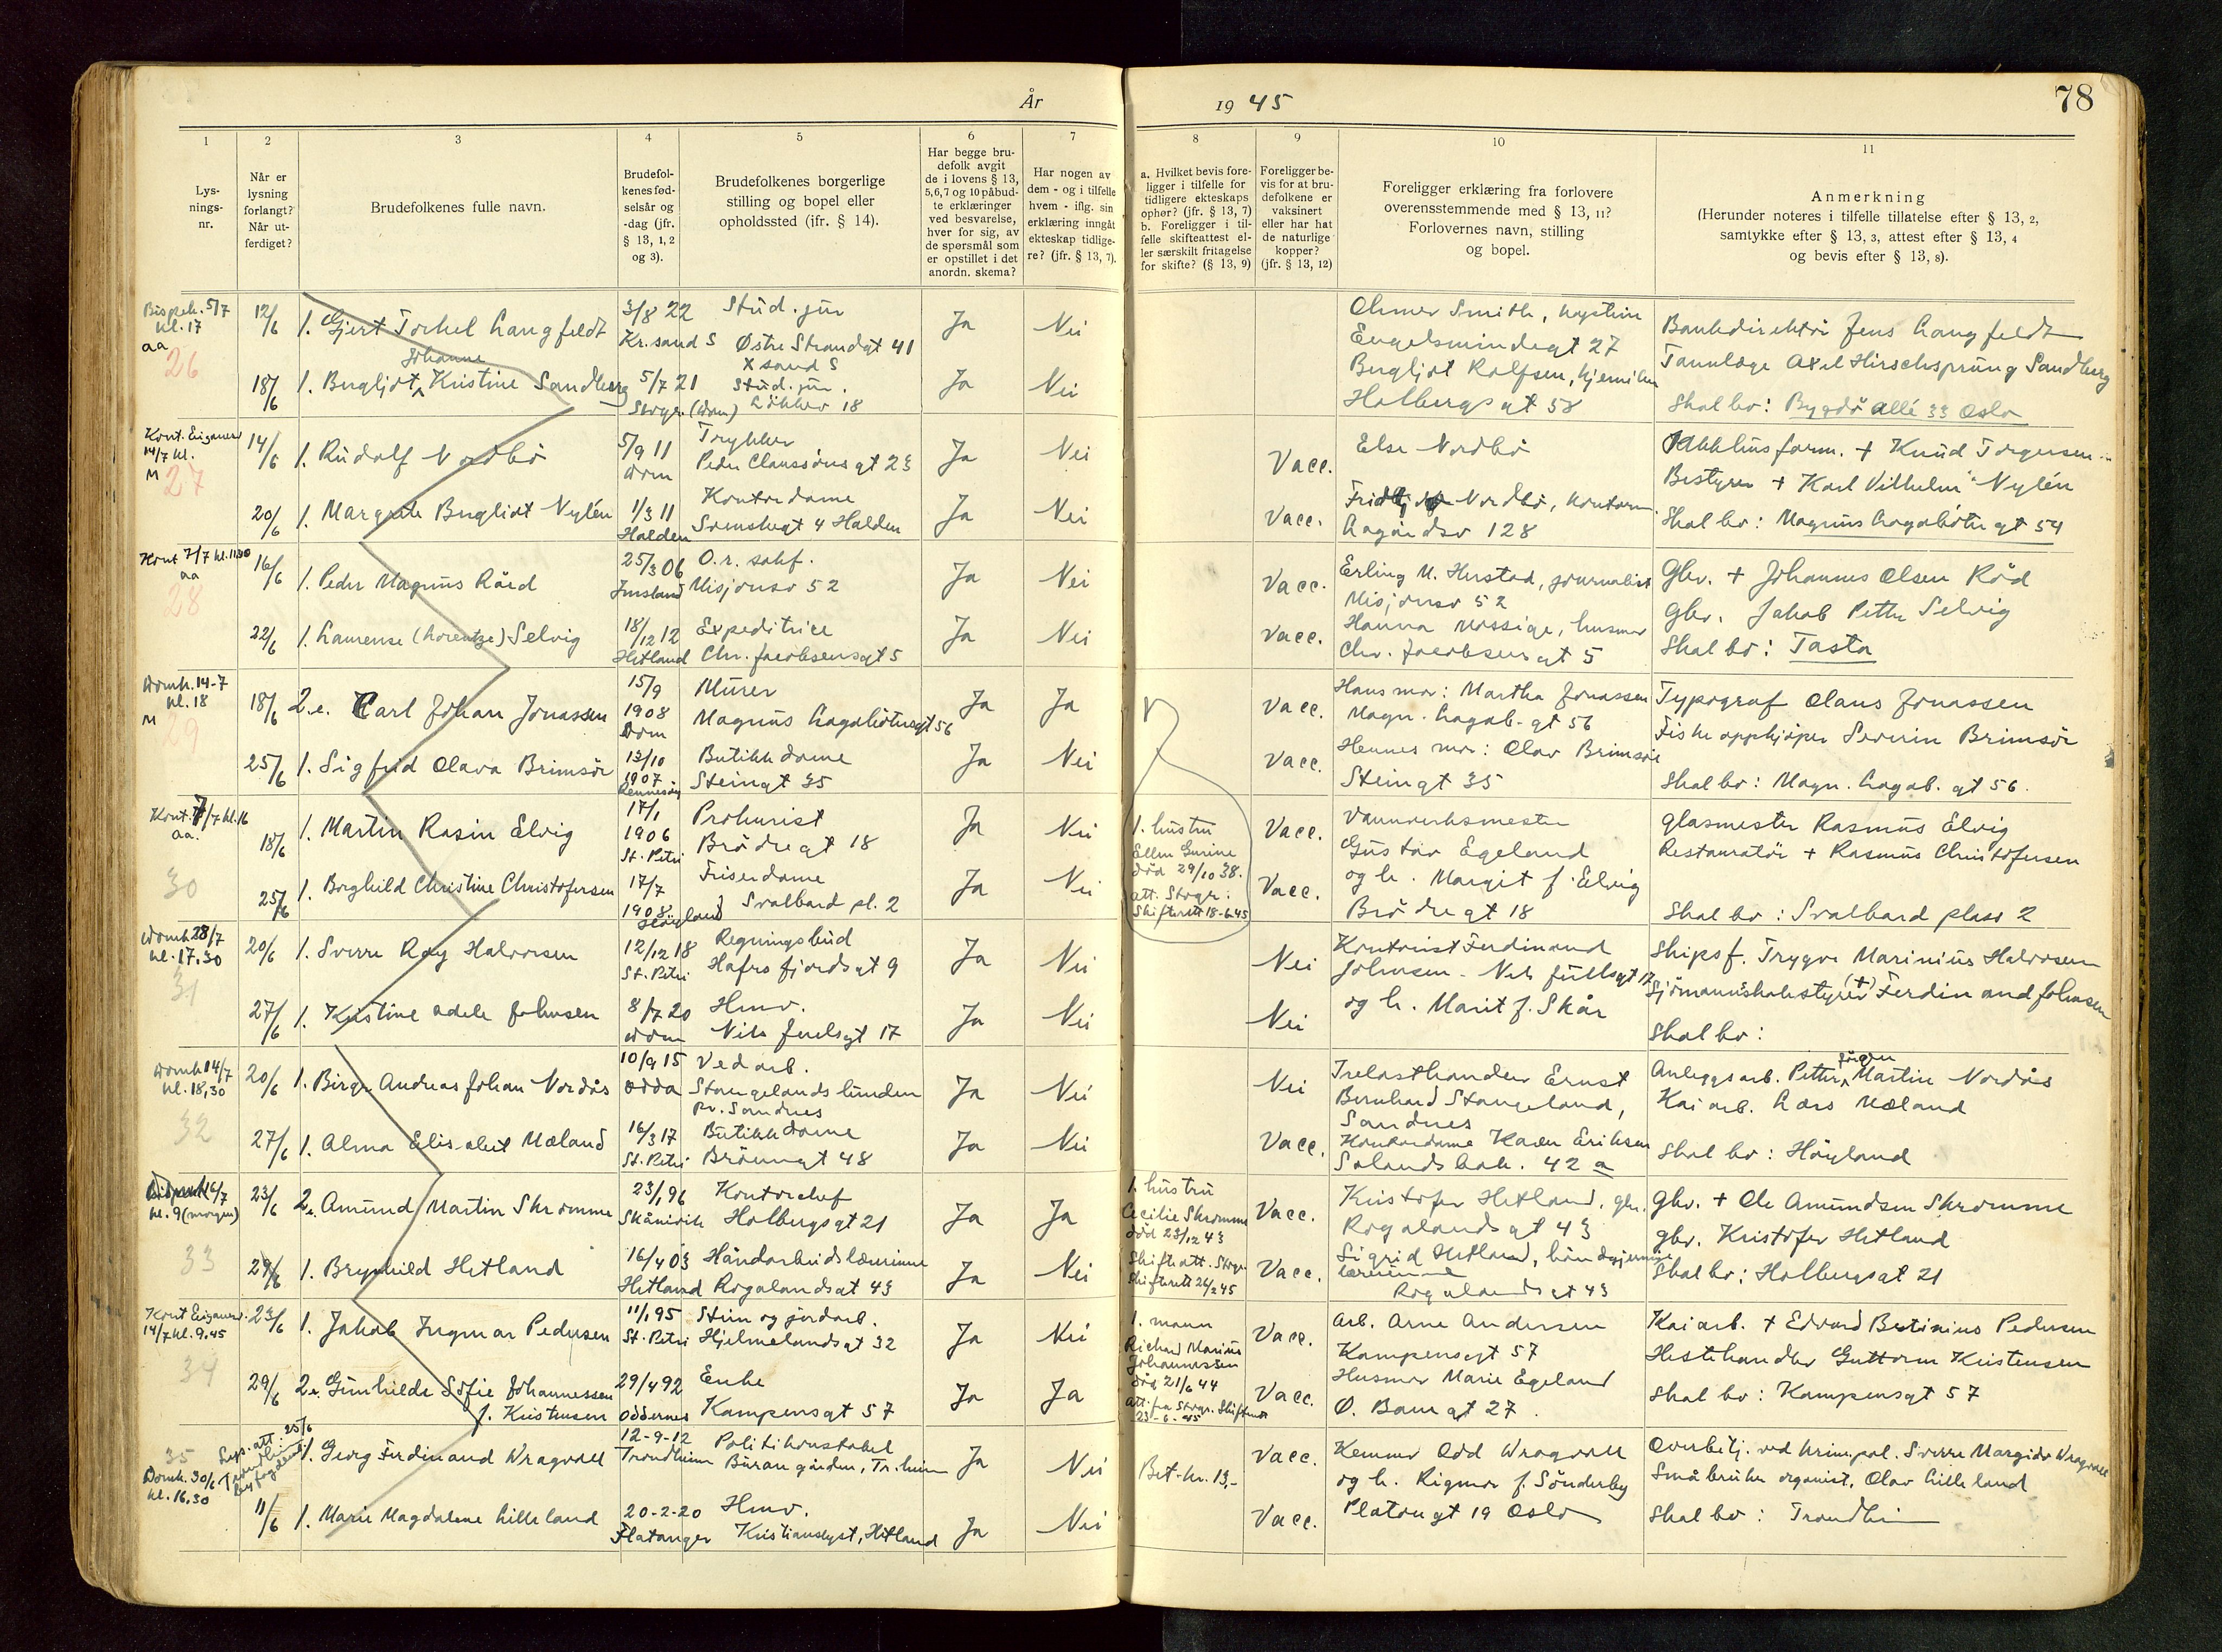 År
19 45
78
1
2
3
4
5
6
7
8
9
10
11
Lys-
nings-
nr.
Når er
lysning
forlangt?
Når ut-
ferdiget?
Brudefolkenes fulle navn.
Brudefol-
kenes fød-
selsår og
-dag (jfr.
§ 13, 1, 2
og 3).
Brudefolkenes borgerlige
stilling og bopel eller
opholdssted (jfr. § 14).
Har begge bru-
defolk avgit
de i lovens § 13,
5,6,7 og 10 påbud-
te erklæringer
ved besvarelse,
hver for sig, av
de spørsmål som
er opstillet i det
anordn. skema?
Har nogen av
dem - og i tilfelle
hvem - iflg. sin
erklæring inngått
ekteskap tidlige-
re? (jfr. § 13, 7).
a. Hvilket bevis fore-
ligger i tilfelle for
tidligere ekteskaps
ophør? (jfr. § 13, 7)
b. Foreligger i til-
felle skifteattest el-
ler særskilt fritagelse
for skifte? (§ 13, 9)
Foreligger be-
vis for at bru-
defolkene er
vaksinert
eller har hat
de naturlige
kopper?
(jfr. § 13, 12)
Foreligger erklæring fra forlovere
overensstemmende med § 13, 11?
Forlovernes navn, stilling
og bopel.
Anmerkning
(Herunder noteres i tilfelle tillatelse efter § 13, 2,
samtykke efter § 13, 3, attest efter § 13, 4
og bevis efter § 13, 8).
Bispek. 5/7
kl. 17
aa
26
12/6
1. Gjert Torkel Langfeldt
3/8 22
Kr.sand S
Stud. jur
Østre Strandgt 41
X sand S
Ja
Nei
Engelsmindegt 27
Bankdirektør Jens Langfeldt
18/6
Johanne
1. Bergljot Kristine Sandberg
5/7 21
Stvgr. (dom)
Stud. jur.
Løkkev 18
Ja
Nei
Bergljot Rolfsen,
Holbergsgt 58
Tannlæge Axel Hirschsprung Sandberg
Skal bo: Bygdø allé 33 Oslo
Kont. Eiganes
14/7 kl.
M
27
14/6
1. Rudolf Nordbø
5/9 11
dom
Trykker
Peder Claussønsgt 23
Ja
Nei
Vacc.
Else Nordbø
+ Knud Torgersen
20/6
1. Margrete Bergliot Nylén
1/3 11
Halden
Kontordame
Svenskegt 4 Halden
Ja
Nei
Vacc.
Nordbø, kontorm.
Lagårdsv 128
Bestyrer + Karl Vilhelm Nylén
Skal bo: Magnus Lagabøtersgt 54
Kont 7/7 kl. 11.30
aa
28
16/6
1. Peder Magnus Råed
25/3 06
Imsland
O.r. sakf.
Misjonsv 52
Ja
Nei
Vacc.
Erling M. Hustad, journalist
Misjonsv 52
Gbr. + Johannes Olsen Råd
22/6
1. Laurense (Lorentze) Selvig
18/12 12
Hetland
Expeditrice
Chr. Jacobsensgt 5
Ja
Nei
Vacc.
Hanna Mossige, husmor
Chr. Jacobsensgt 5
Gbr. Jakob Petter Selvig
Skal bo: Tasta
Domk. 14-7
kl. 18
M
29
18/6
2.e. Carl Johan Jonassen
15/9
1908
Dom
Murer
Magnus Lagabøtersgt 56
Ja
Ja
Vacc.
Hans mor: Martha Jonassen
Magn. Lagab. gt 56
Typograf Olaus Jonassen
25/6
1. Sigfrid Olava Brimsør
13/10
1907
Rennesøy
Butikkdame
Steingt 35
Ja
Nei
Vacc.
Hennes mor: Olav Brimsøe
Steingt 35
Fiskeoppkjøper Severin Brimsør
Skal bo: Magn. Lagab. gt 56.
Kont. 7/7 kl. 16
aa.
30
18/6
1. Martin Rasin Elvig
17/1
1906
St. Petri
Prokurist
Brødregt 18
Ja
Nei
1. hustru
Ellen Gurine
død 29/10 38.
att. Stvgr.
Skifterett 18-6.45
Vacc.
Vannverksmester
Gustav Egeland
Glasmester Rasmus Elvig
25/6
1. Borghild Christine Christofersen
17/7
1908
Høyland
Friserdame
Svalbard pl. 2
Ja
Nei
Vacc.
og h. Margit f. Elvig
Brødregt 18
Restauratør + Rasmus Christofersen
Skal bo: Svalbard plass 2
Domk 28/7
kl. 17.30
31
20/6
1. Sverre Roy Halvorsen
12/12 18
St. Petri
Regningsbud
Hafrsfjordsgt 9
Ja
Nei
Nei
Kontorist Ferdinand
Johnsen - Nels Juelsgt 17
Skipsf. Trygve Marinius Halvorsen
27/6
1. Kristine Adele Johnsen
8/7 20
dom
Hmv.
Nils Juelsgt 17
Ja
Nei
Nei
og h. Marit f. Skår
Sjømannskolestyrer (+) Ferdinand Johnsen
Skal bo:
Domk 14/7
kl. 18,30
32
20/6
1. Birger Andreas Johan Nordås
10/9 15
Odda
Vedarb.
Stangelandslunden
pr. Sandnes
Ja
Nei
Nei
Trelasthandler Ernst
Bernhard Stangeland,
Sandnes
Jørgen
Anleggsarb. Petter Martin Nordås
27/6
1. Alma Elisabet Mæland
16/3 17
St. Petri
Butikkdame
Brønngt 48
Ja
Nei
Vacc.
Kontordame Karen Eriksen
Solandsbak. 42 a
Kaiarb. Lars Mæland
Skal bo: Høyland
16/7
kl. 9 (morgen)
33
23/6
2.e. Amund Martin Skromme
23/1 96
Skånevik
Kontorchef
Holbergsgt 21
Ja
Ja
1. hustru
Cecilie Skromme
død 23/12 43
Skifteatt. Stvgr
skifterett 26/2 45
Vacc.
Kristofer Hetland, gbr.
Rogalandsgt 43
Gbr. + Ole Amundsen Skromme
29/6
1. Brynhild Hetland
16/4 03
Hetland
Håndarbeidslærerinne
Rogalandsgt 43
Ja
Nei
Vacc.
Sigrid Hetland,
lærerinne
Rogalandsgt 43
Gbr. Kristofer Hetland
Skal bo: Holbergsgt 21
Kont Eiganesv.
14/7 kl. 9.45
34
23/6
1. Jakob Ingmar Pedersen
11/1 95
St. Petri
Stein og jordarb.
Hjelmelandsgt 32
Ja
Nei
1. mann
Richard Marius
Johannessen
død 21/6 44
att. fra Stvgr. Skifterett
23-6-45
Vacc.
Arb. Arne Andersen
Kampensgt 57
Kaiarb. + Edvard Bertinius Pedersen
29/6
2.e. Gunhilde Sofie Johannessen
f. Kristensen
29/4 92
Oddernes
Enke
Kampensgt 57
Ja
Ja
Vacc.
Husmor Marie Egeland
Ø. Banegt 27
Hestehandler Guttorm Kristensen
Skal bo: Kampensgt 57
35
Lysn. att. 25/6
Trondheim
byfogden
Domk. 30/6
kl. 16.30
1. Georg Ferdinand Wragvold
12-9-12
Trondheim
Politikonstabel
Burangården, Tr.heim
Ja
Nei
Bet. kr. 13,-
Vacc.
Kemner Odd Wragvold
og h. Rigmor f. Sønderby
Overbetj. ved krim.pol. Sverre Margido Wragvold
11/6
1. Marie Magdalene Lilleland
20-2-20
Flatanger
Hmv.
Kristianslyst, Hetland
Ja
Nei
Vacc.
Platougt 19 Oslo
Småbruker organist, Olav Lilleland
Skal bo: Trondheim